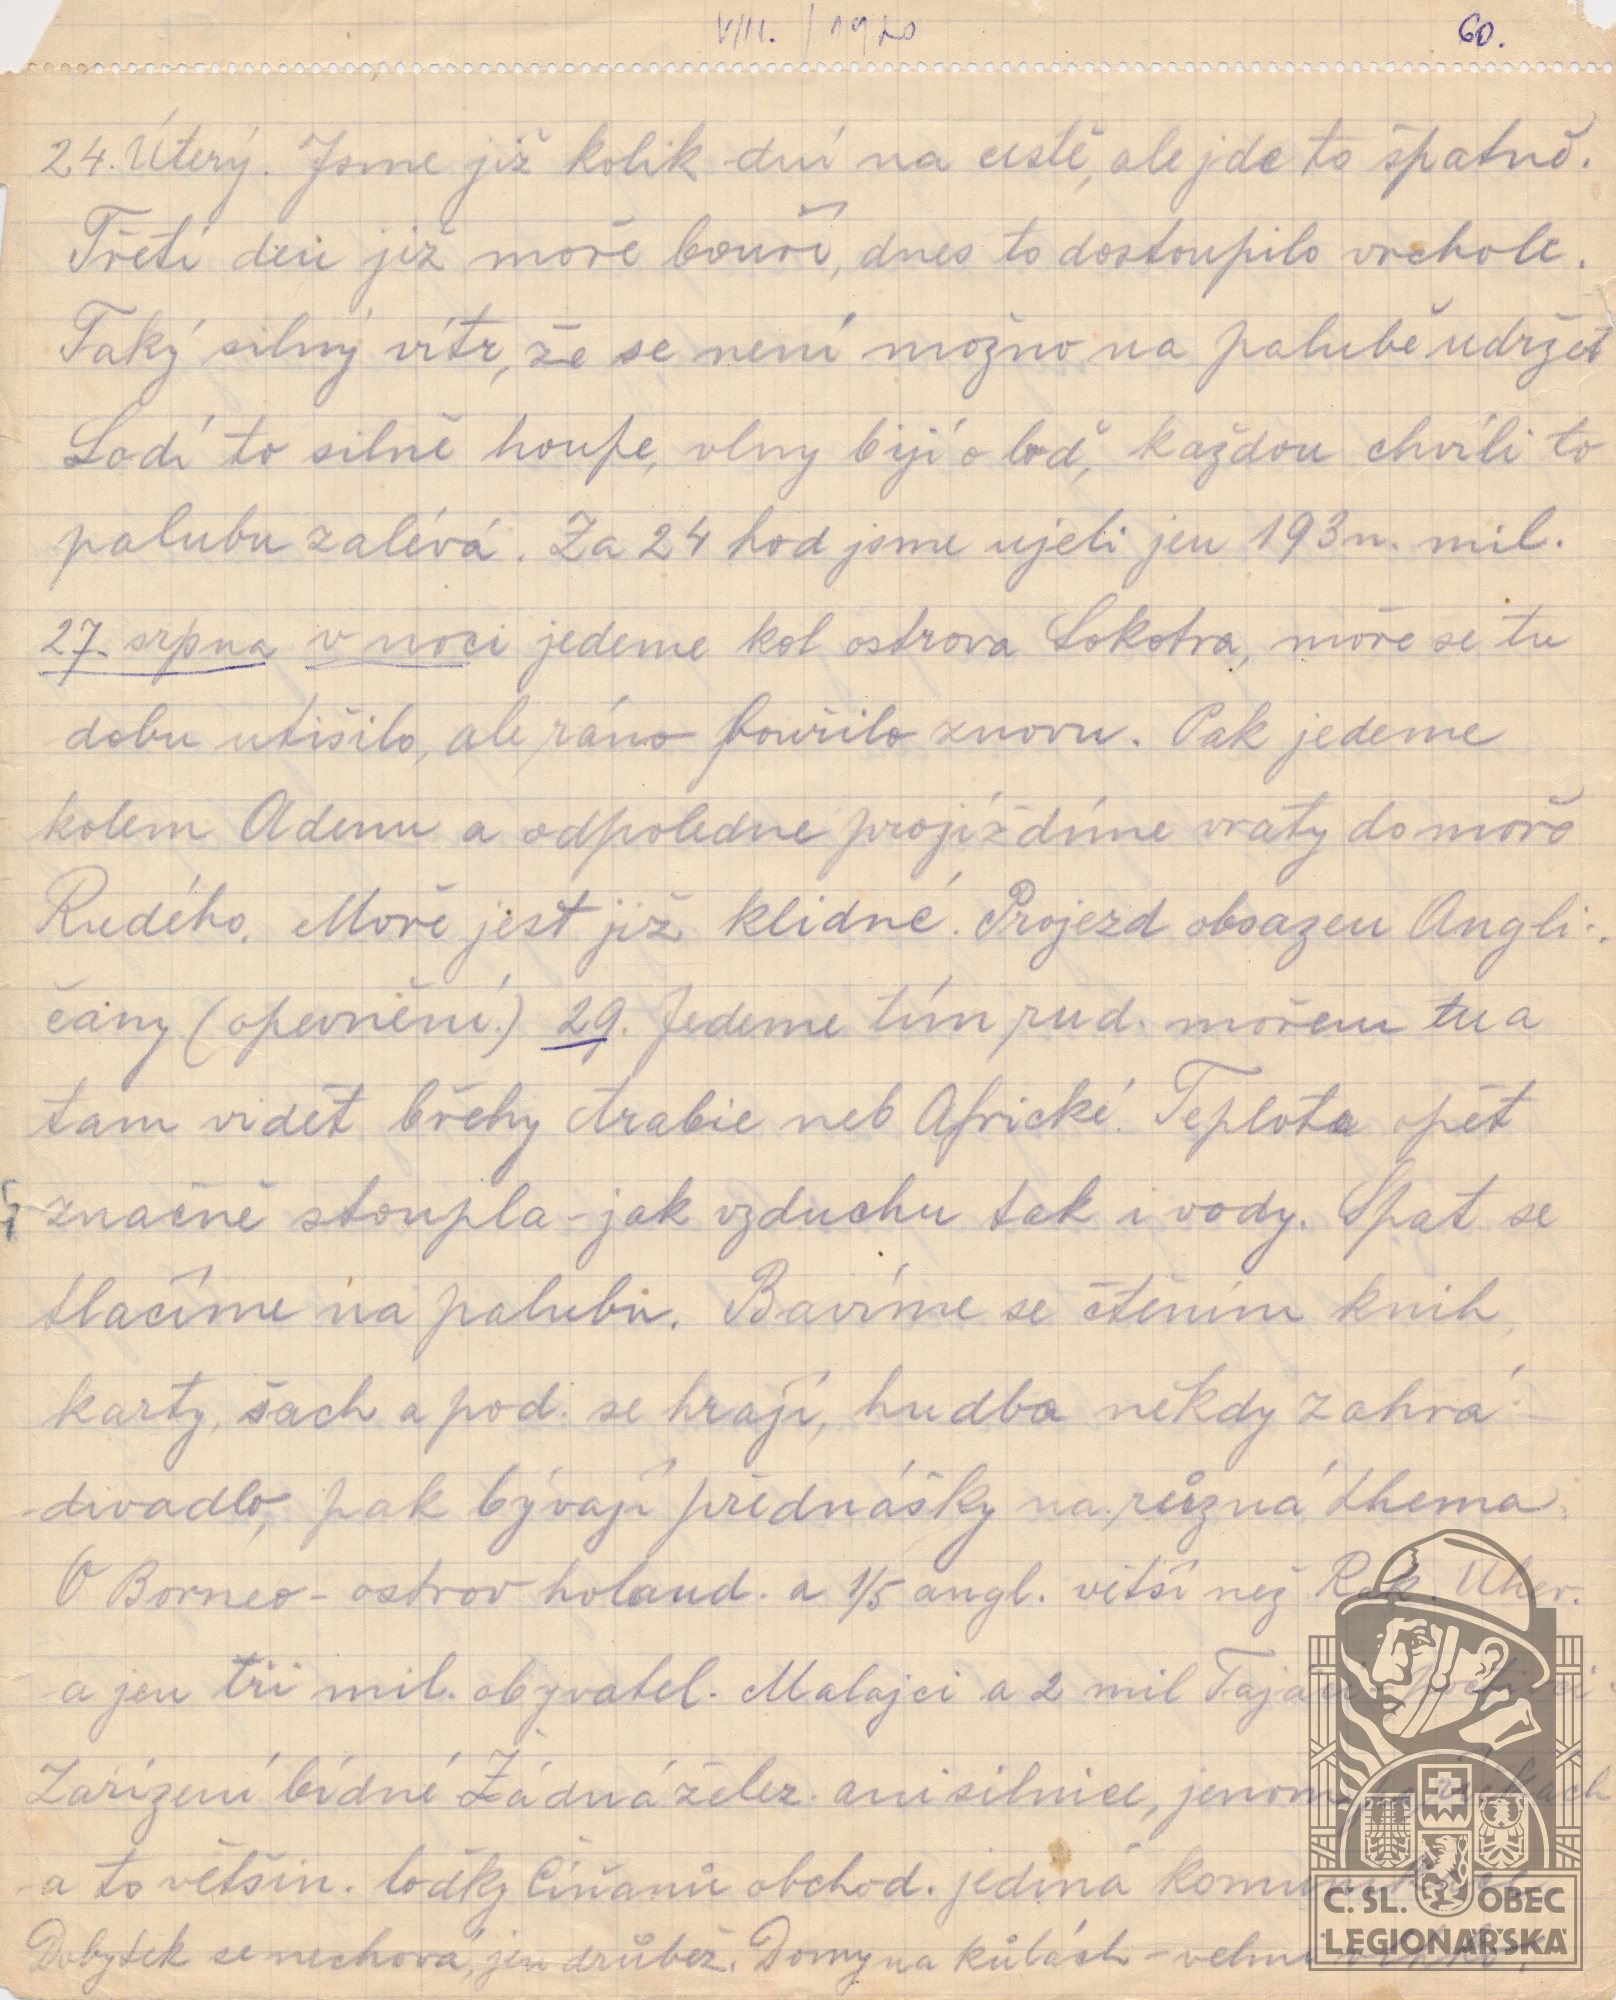 VIII. / 1920 60.
24. Úterý. Jsme již kolik dní na cestě, ale jde to špatně.
Třetí den již moře bouří, dnes to dostoupilo vrchole.
Taký silný vítr, že se není možno na palubě udržet
Lodí to silně houpe, vlny bijí o loď, každou chvíli to
palubu zalévá. Za 24 hod jsme ujeli jen 193 n. mil.
27. srpna v noci jedeme kol ostrova Sokotra, moře se tu
dobu utišilo, ale ráno bouřilo znovu. Pak jedeme
kolem Adenu a odpoledne projíždíme vraty do moře
Rudého. Moře jest již klidné. Projezd obsazen Angli-
čány (opevnění.) 29. Jedeme tím rud. mořem tu a
tam vidět břehy Arabie neb Africké. Teplota opět
značně stoupla - jak vzduchu tak i vody. Spat se
tlačíme na palubu. Bavíme se čtěním knih,
karty, šach a pod. se hrají, hudba někdy zahrá -
divadlo, pak bývají přednášky na různá thema.
O Borneo - ostrov holand. a 1/5 angl. větší než Rak. Uher.
a jen tři mil. obyvatel. Malajci a 2 mil
Zařízení bídné Žádná želez. ani silnice, jenom
a to většin. loďky Číňanů obchod. jediná
Dobytek se nechová, jen drůbež. Domy na kůlách - velmi
Č. SL. OBEC
LEGIONÁŘSKÁ